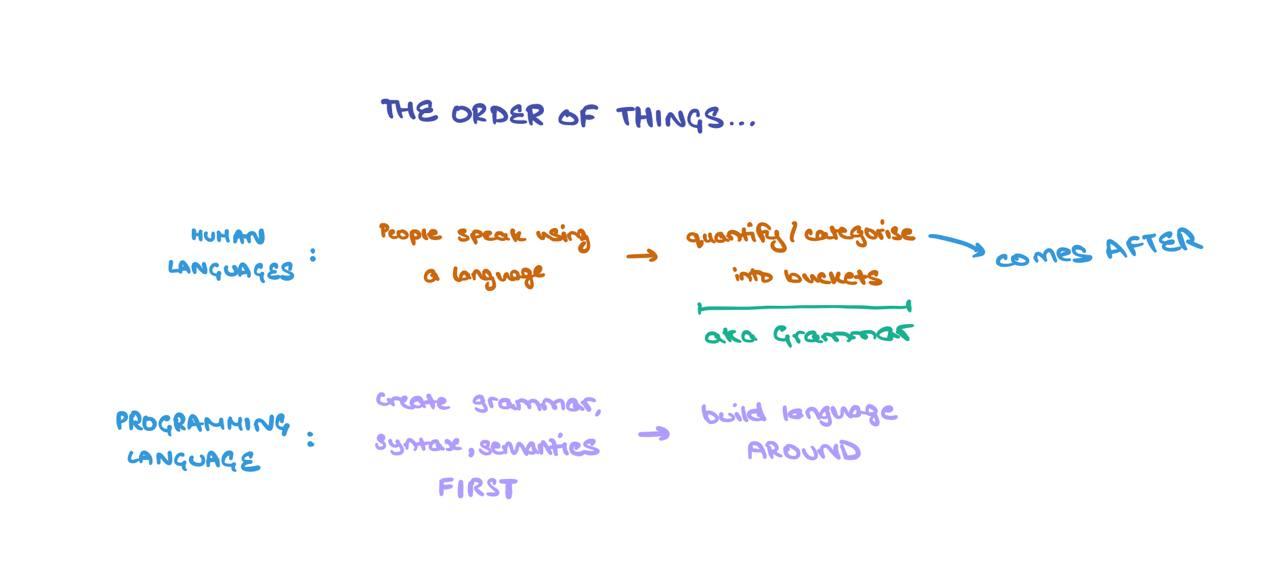 THE ORDER OF THINGS...
HUMAN
LANGUAGES :
People speak using
a language
→
quantify / categorise
into buckets
aka Grammar
→ comes AFTER
PROGRAMMING
LANGUAGE :
create grammar,
syntax, semantics
FIRST
→
build language
AROUND